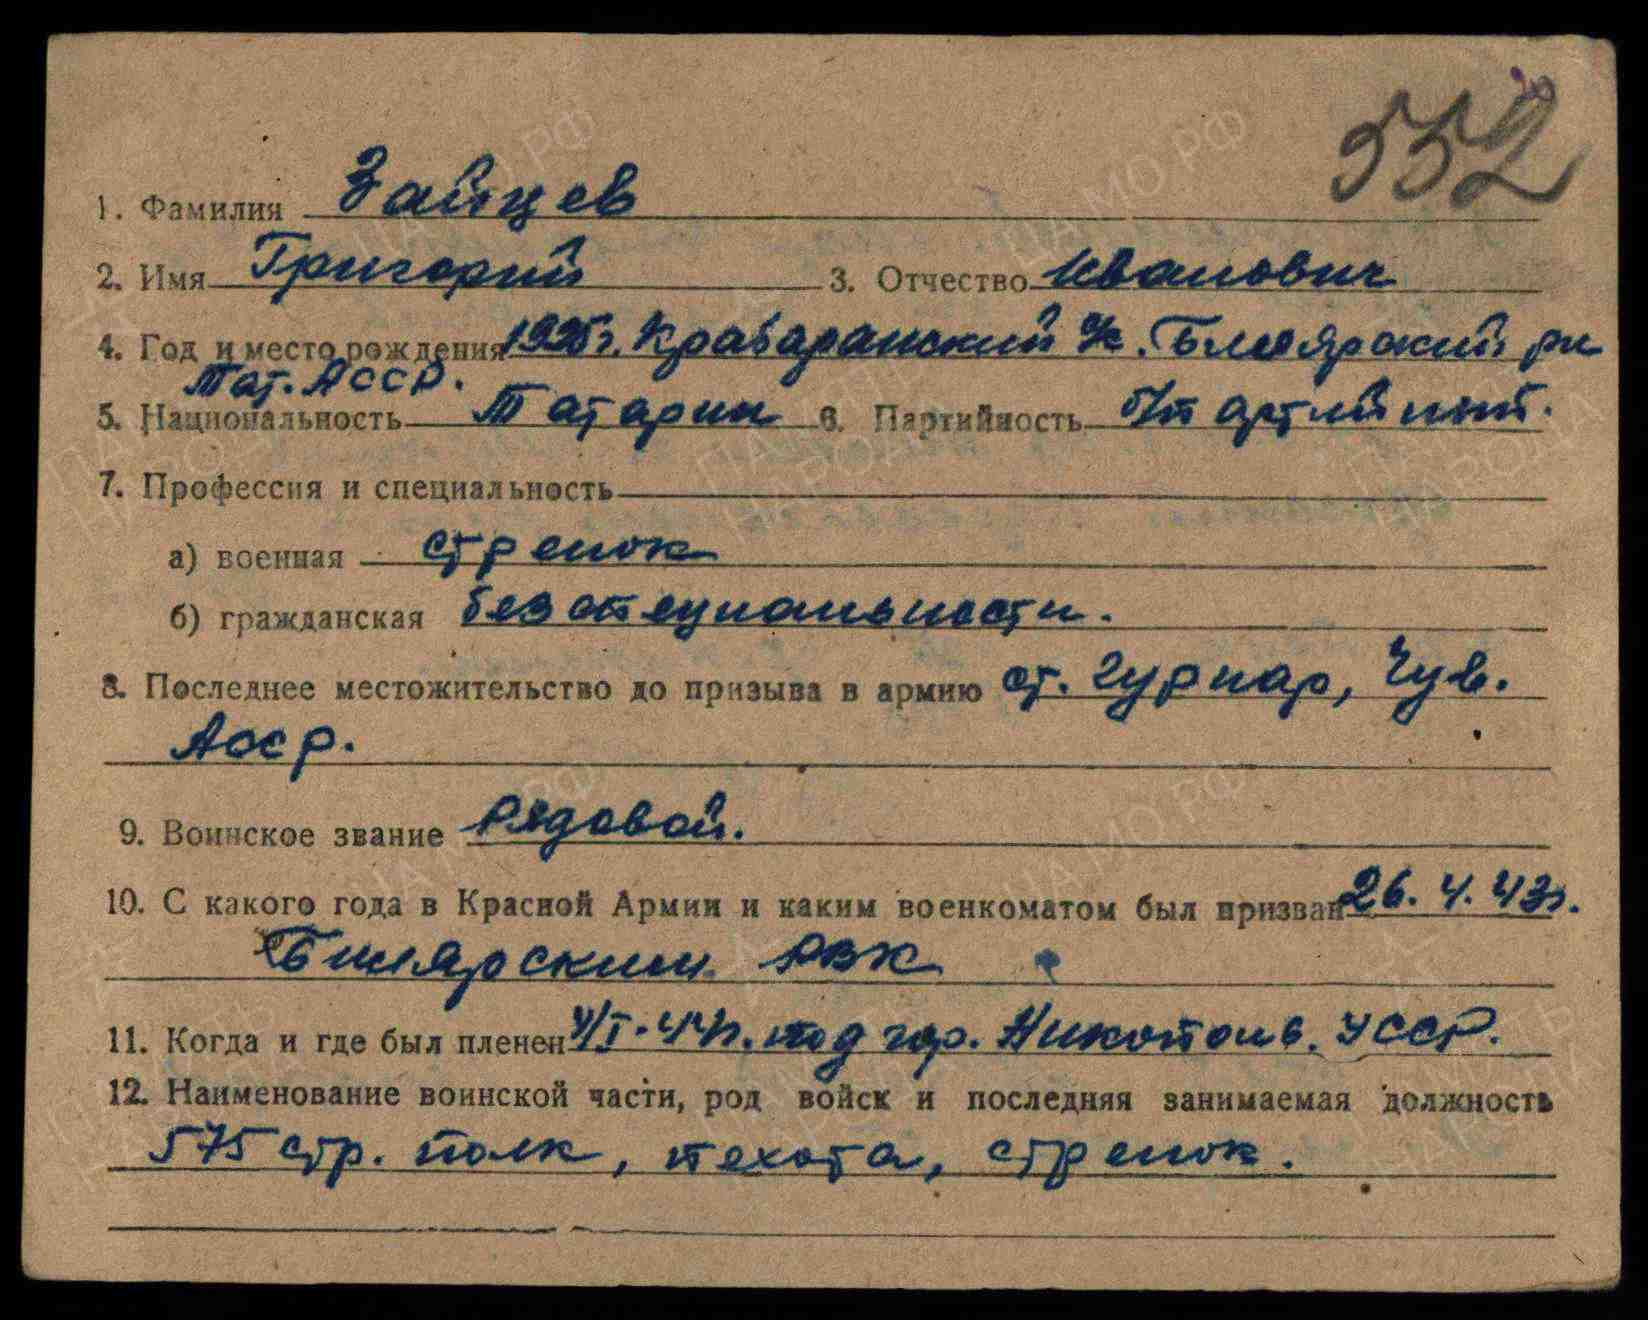 552
1. Фамилия Зайцев
2. Имя Григорий 3. Отчество Иванович
4. Год и место рождения 1925г. Билярский рн
Тат. АССР.
5. Национальность Татарин 6. Партийность б/партийный.
7. Профессия и специальность
а) военная стрелок
б) гражданская без специальности.
8. Последнее местожительство до призыва в армию ст. Чув.
Асср.
9. Воинское звание Рядовой.
10. С какого года в Красной Армии и каким военкоматом был призван 26. 4. 43г.
Билярским РВК
11. Когда и где был пленен под гор. Никополь. УССР.
12. Наименование воинской части, род войск и последняя занимаемая должность
575 стр. полк, пехота, стрелок.